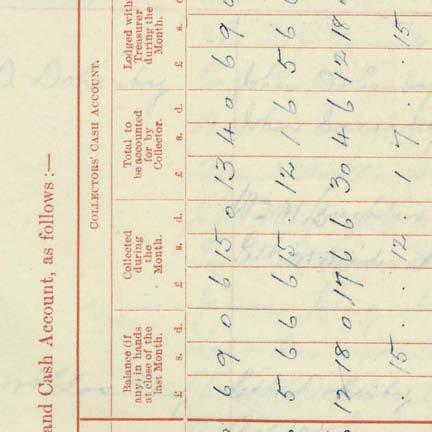 and Cash Account, as follows :—
COLLECTORS' CASH ACCOUNT.
Balance (if any) in hands at close of the last Month.
Collected during the Month.
Total to be accounted for by Collector.
Lodged with Treasurer during the Month.
£ s. d. £ s. d. £ s. d. £ s.
6 9 0 6 15 0 13 4 0 6 9
5 6 6 6 15 . 12 1 6 5 6 6
12 18 0 17 6 6 30 4 6 12 18
. 15 . . 12 . 1 7 . . 15